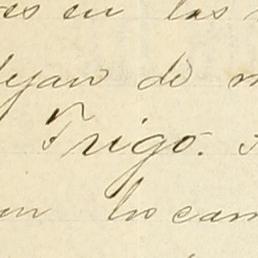 es en las
dejan de m
Trigo.
en lo cam